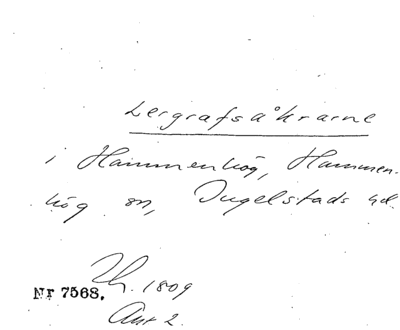 Lergrafsåkrarne
i Hammenhög, Hammen-
hög sn, Ingelstads hd.
Nr 7568. Th. 1809
Ant 2